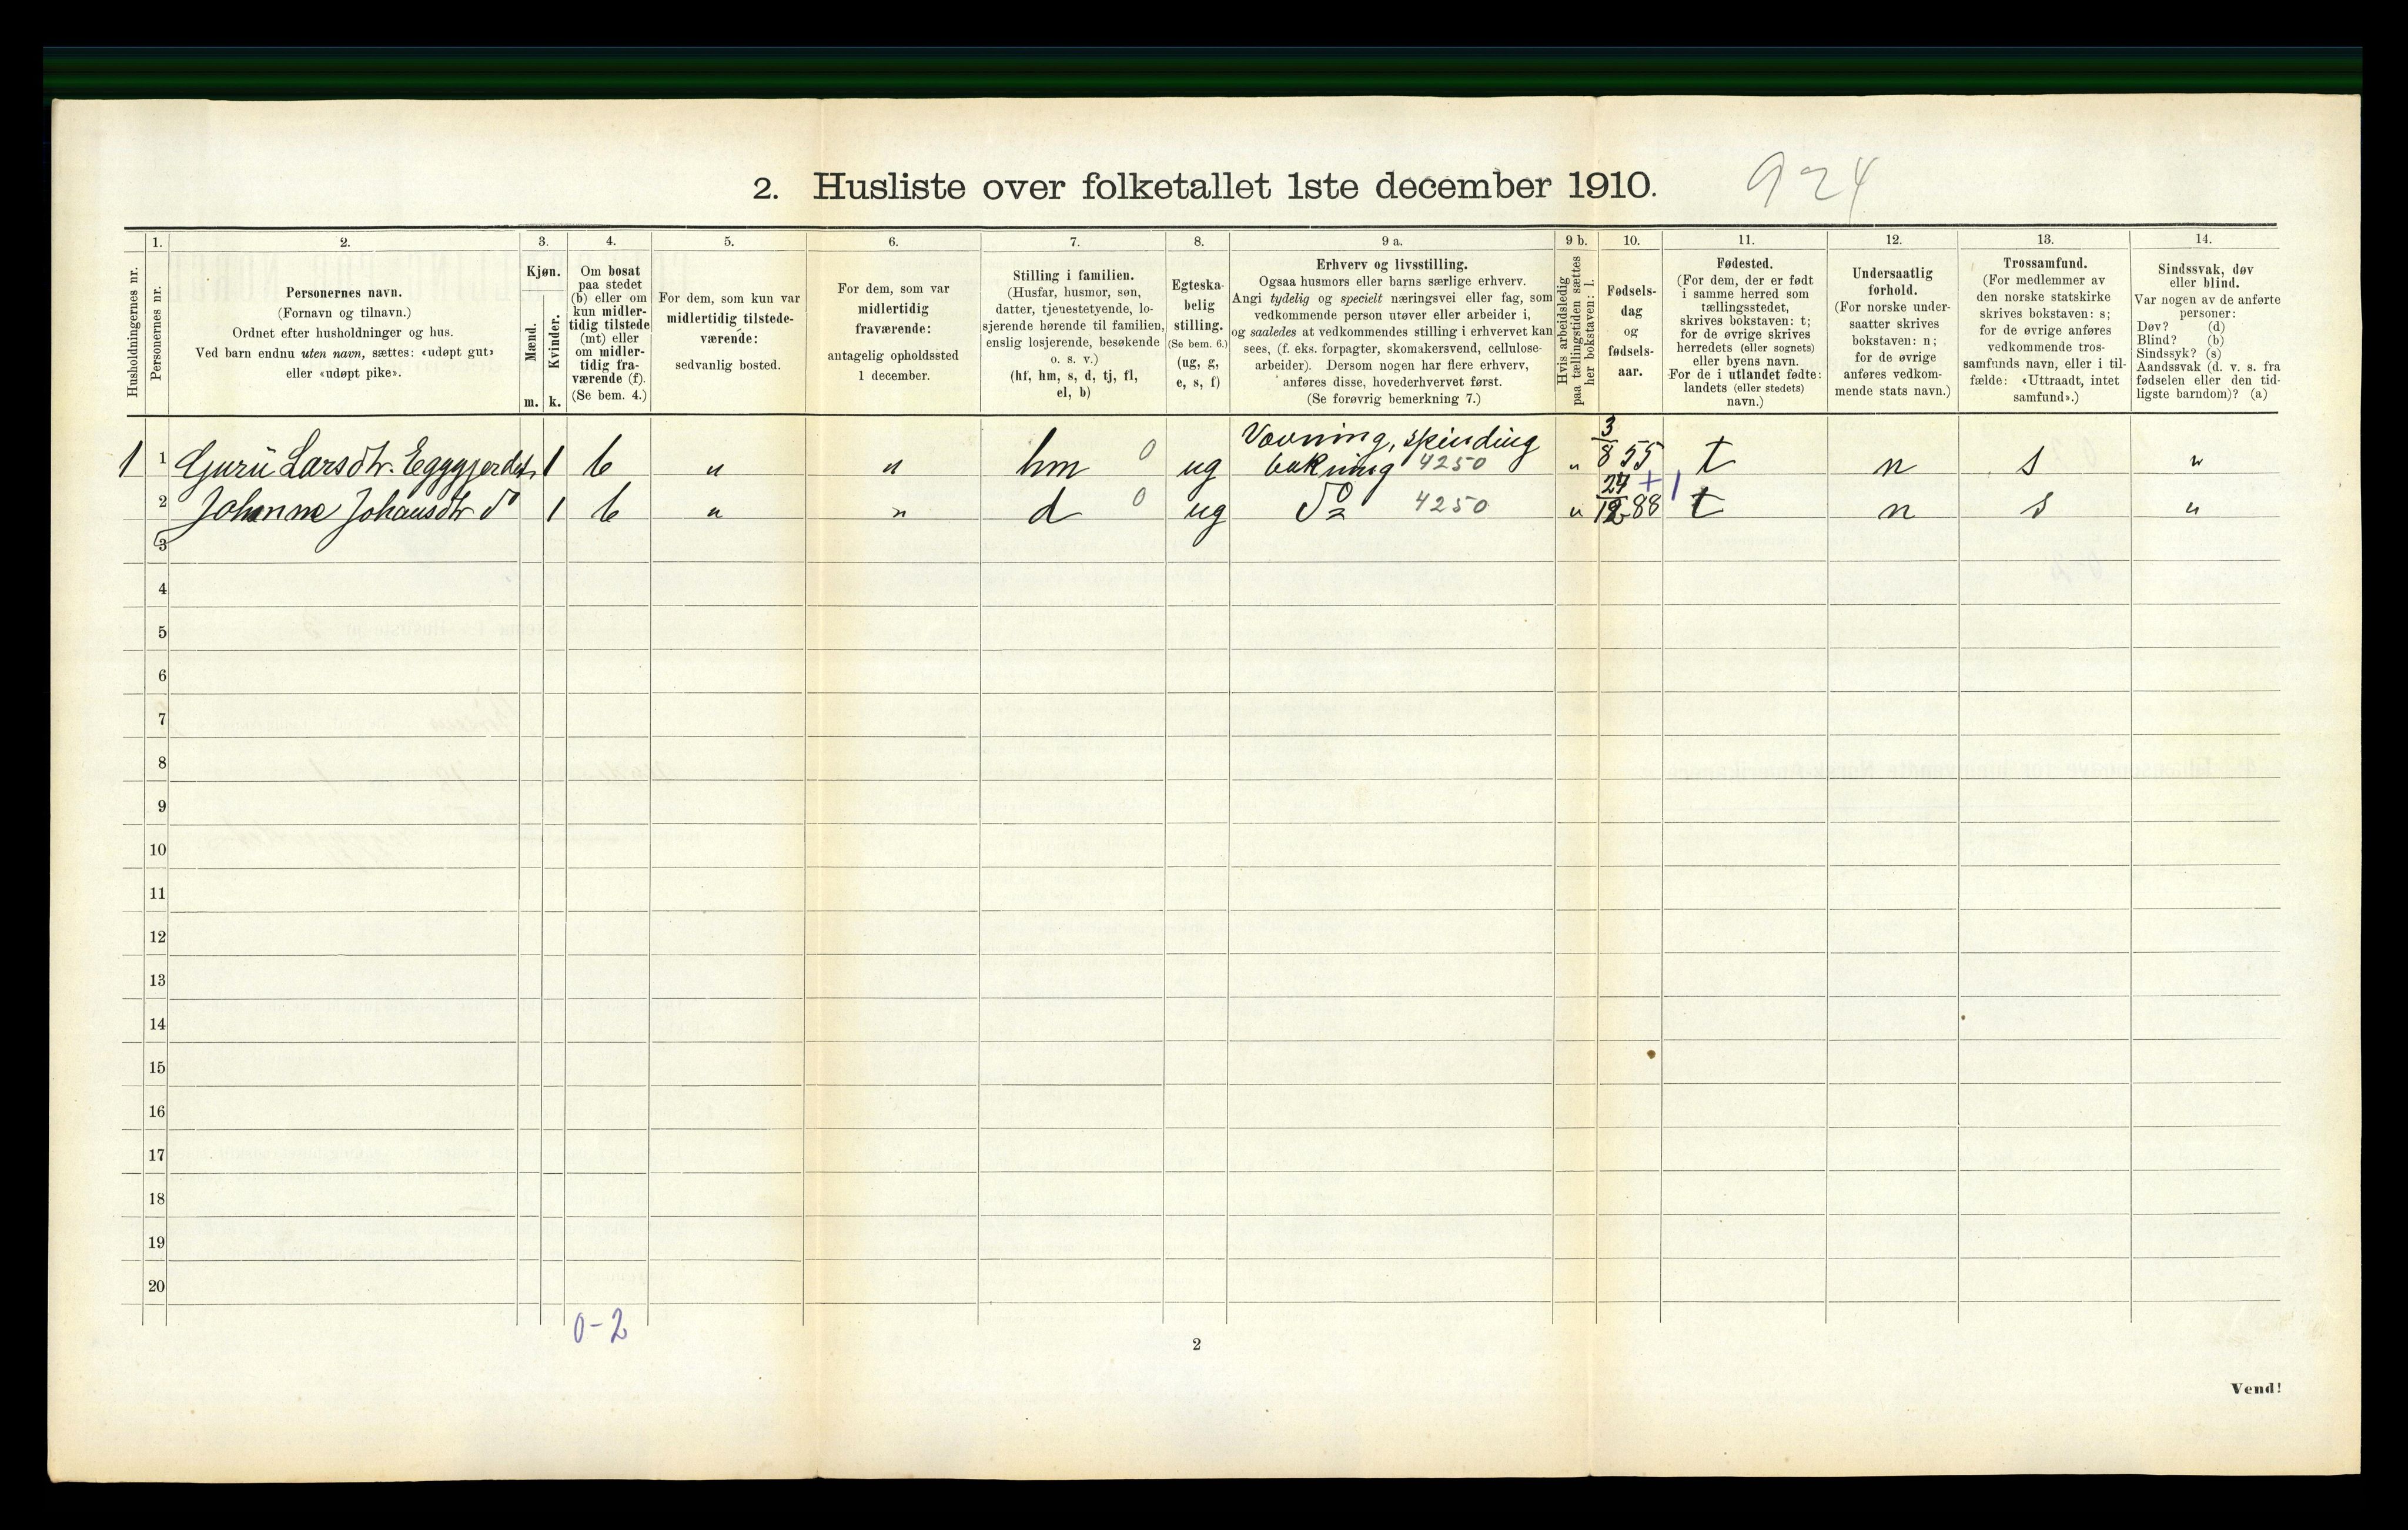 2. Husliste over folketallet 1ste december 1910. 924
Husholdningernes nr.
1.
Personernes nr.
2.
Personernes navn.
(Fornavn og tilnavn.)
Ordnet efter husholdninger og hus.
Ved barn endnu uten navn, sættes: «udøpt gut»
eller «udøpt pike».
3.
Kjøn.
Mænd.
Kvinder.
m. k.
4.
Om bosat
paa stedet
(b) eller om
kun midler-
tidig tilstede
(mt) eller
om midler-
tidig fra-
værende (f).
(Se bem. 4.)
5.
For dem, som kun var
midlertidig tilstede-
værende:
sedvanlig bosted.
6.
For dem, som var
midlertidig
fraværende:
antagelig opholdssted
1 december.
7.
Stilling i familien.
(Husfar, husmor, søn,
datter, tjenestetyende, lo-
sjerende hørende til familien,
enslig losjerende, besøkende
o. s. v.)
(hf, hm, s, d, tj, fl,
el, b)
8.
Egteska-
belig
stilling.
(Se bem. 6.)
(ug, g,
e, s, f)
9 a.
Erhverv og livsstilling.
Ogsaa husmors eller barns særlige erhverv.
Angi tydelig og specielt næringsvei eller fag, som
vedkommende person utøver eller arbeider i,
og saaledes at vedkommendes stilling i erhvervet kan
sees, (f. eks. forpagter, skomakersvend, cellulose-
arbeider). Dersom nogen har flere erhverv,
anføres disse, hovederhvervet først.
(Se forøvrig bemerkning 7.)
9 b.
Hvis arbeidsledig
paa tællingstiden sættes
her bokstaven: l.
10.
Fødsels-
dag
og
fødsels-
aar.
11.
Fødested.
(For dem, der er født
i samme herred som
tællingsstedet,
skrives bokstaven: t;
for de øvrige skrives
herredets (eller sognets)
eller byens navn.
For de i utlandet fødte:
landets (eller stedets)
navn.)
12.
Undersaatlig
forhold.
(For norske under-
saatter skrives
bokstaven: n;
for de øvrige
anføres vedkom-
mende stats navn.)
13.
Trossamfund.
(For medlemmer av
den norske statskirke
skrives bokstaven: s;
for de øvrige anføres
vedkommende tros-
samfunds navn, eller i til-
fælde: «Uttraadt, intet
samfund».)
14.
Sindssvak, døv
eller blind.
Var nogen av de anførte
personer:
Døv? (d)
Blind? (b)
Sindssyk? (s)
Aandssvak (d. v. s. fra
fødselen eller den tid-
ligste barndom)? (a)
1 1 Guru Larsdtr. Egggjerdet 1 b " " hm 0 ug Vævning, spinding
bakning 4250 " 3/8 55 t n s "
2 Johanne Johansdtr do 1 b " " d 0 ug Do 4250 " 24/12 88 + 1 t n s "
3
4
5
6
7
8
9
10
11
12
13
14
15
16
17
18
19
20
0-2
2
Vend!